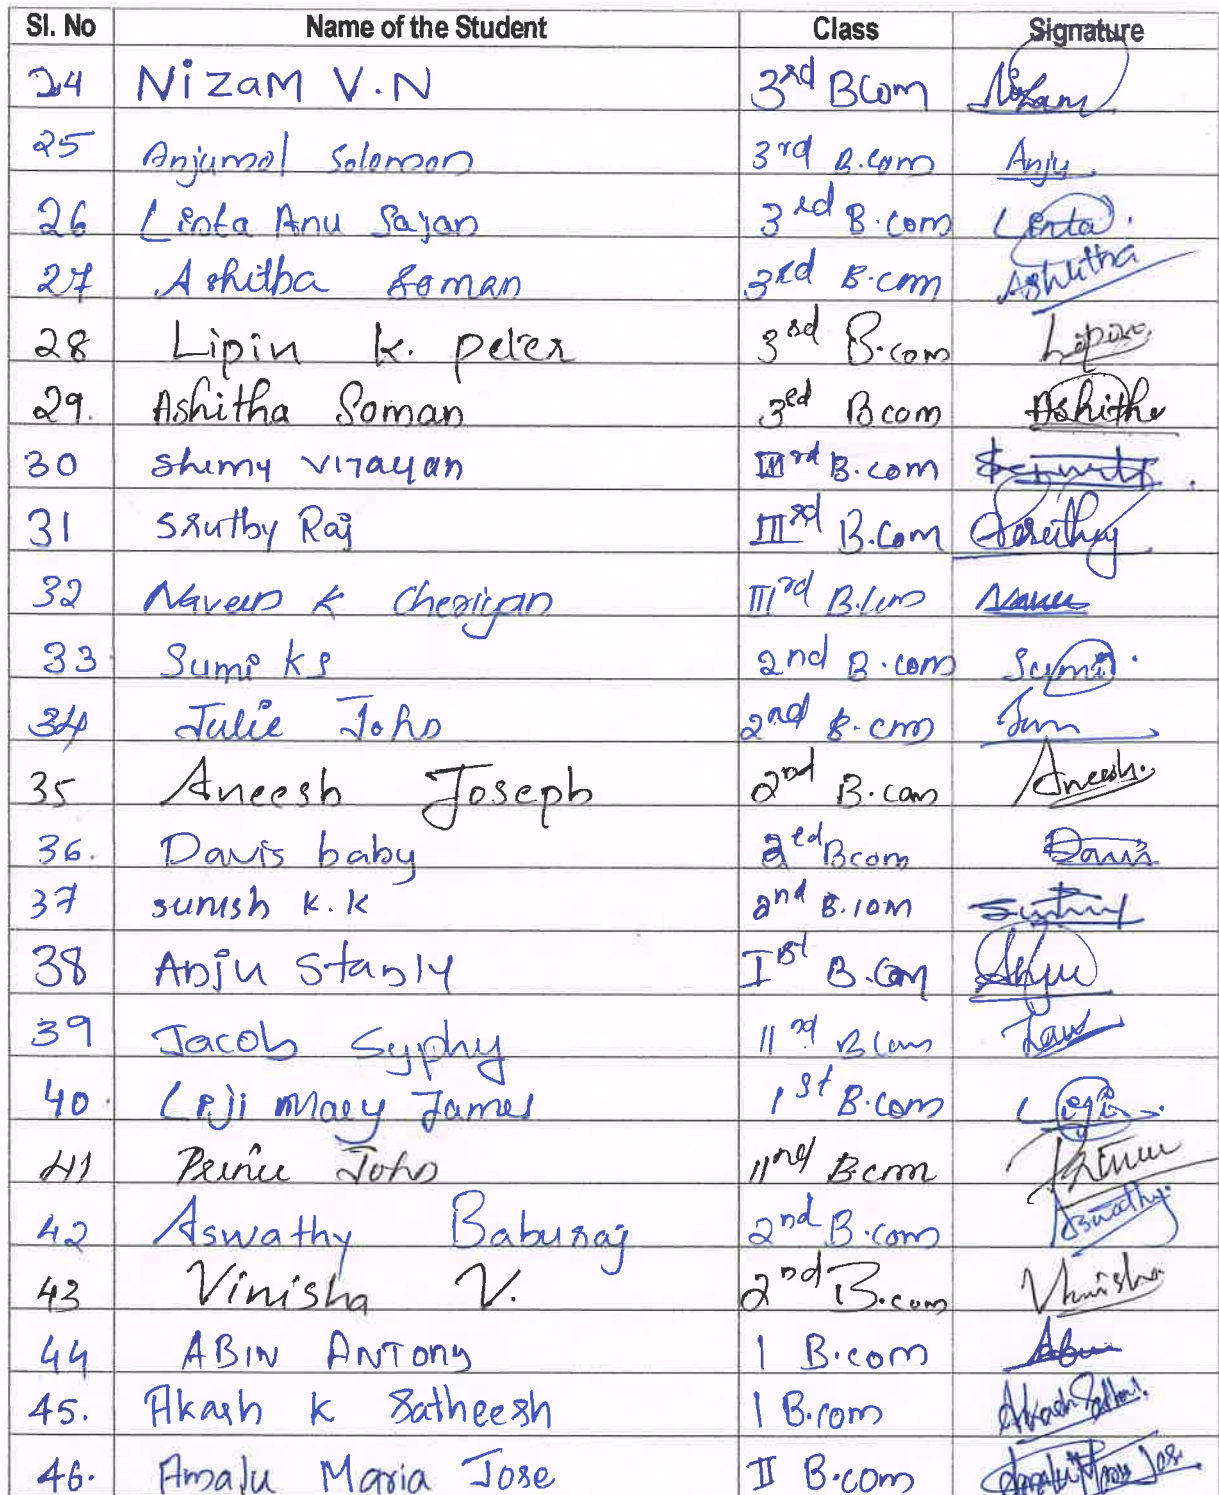 Sl. No Name of the Student Class Signature
24 Nizam V.N 3rd BCom Nizam
25 Anjumol Solomon 3rd B.com Anju
26 Linta Anu Sajan 3rd B.com Linta
27 Ashitha Soman 3rd B.com Ashitha
28 Lipin k. peter 3rd B.com Lipin
29. Ashitha Soman 3rd Bcom Ashitha
30 Shimy Vijayan IIIrd B.com
31 Sruthy Raj IIIrd B.com Sruthy
32 Naveen K Cheriyan IIIrd B.com
33 Sumi KS 2nd B.com Sumi
34 Julie John 2nd B.com
35 Aneesh Joseph 2nd B.com Aneesh.
36. Davis baby 2nd Bcom Davis
37 k.k 2nd B.com
38 Anju Stanly Ist B.Com Anju
39 Jacob Syphy IInd BCom
40. Liji Mary James 1st B.com Legi
41 John IInd B.com
42 Aswathy Baburaj 2nd B.com Aswathy.
43 Vinisha V. 2nd B.com Vinisha
44 ABIN ANTONY 1 B.com Abin
45. Akash K Satheesh 1 B.com Akash
46. Amalu Maria Jose II B.com Amalu Maria Jose